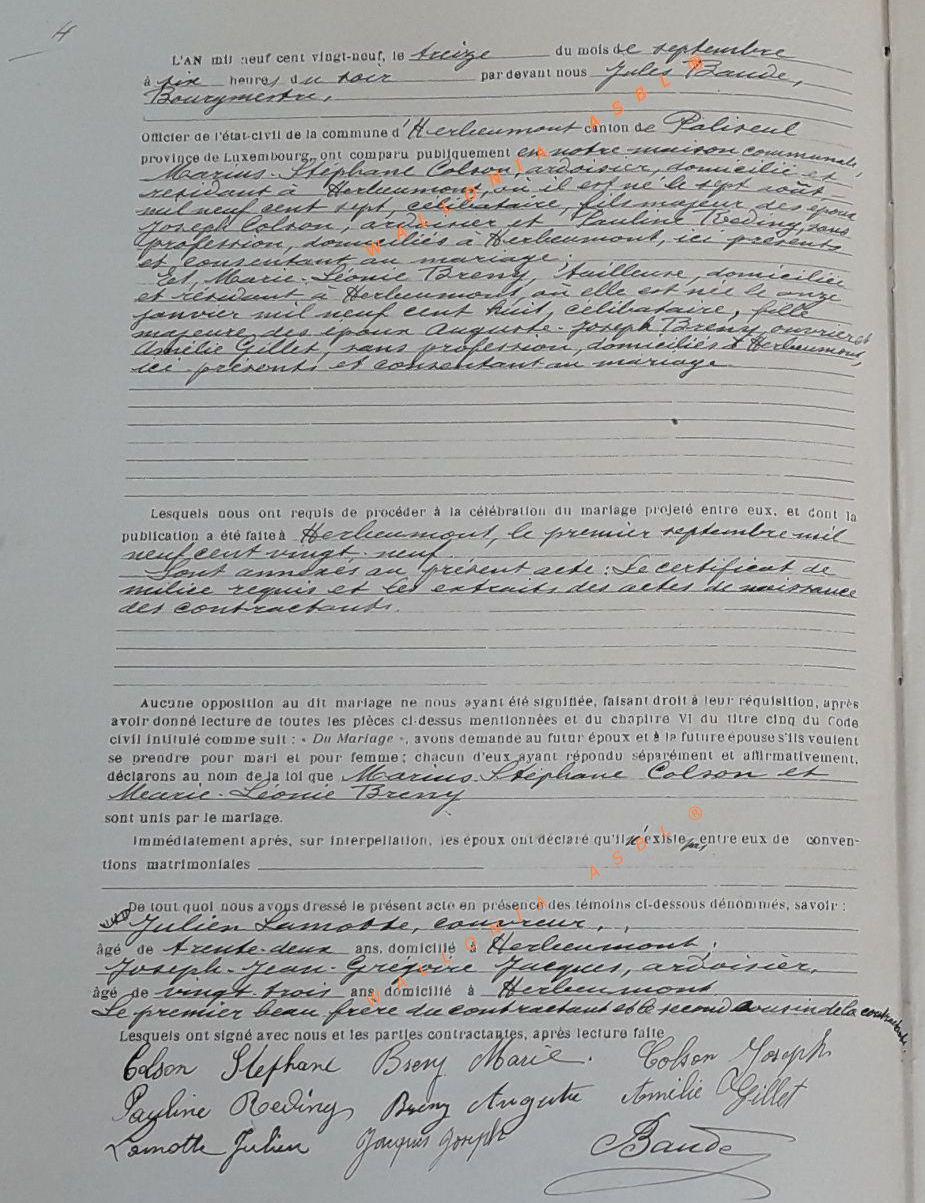 4
L'AN mil neuf cent vingt-neuf, le treize du mois de septembre
à six heures du soir par devant nous Jules Baude,
Bourgmestre,
Officier de l'état-civil de la commune d'Herbeumont canton de Paliseul
province de Luxembourg, ont comparu publiquement en notre maison communale,
Marius-Stéphane Colson, ardoisier, domicilié et
résidant à Herbeumont, où il est né le sept août
mil neuf cent sept, célibataire, fils majeur des époux
Joseph Colson, ardoisier et Pauline Reding, sans
profession, domiciliés à Herbeumont, ici présents
et consentant au mariage;
Et, Marie-Léonie Breny, tailleuse, domiciliée
et résidant à Herbeumont, où elle est née le onze
janvier mil neuf cent huit, célibataire, fille
majeure des époux Auguste-Joseph Breny, ouvrier et
Amélie Gillet, sans profession, domiciliés à Herbeumont,
ici présents et consentant au mariage
Lesquels nous ont requis de procéder à la célébration du mariage projeté entre eux, et dont la
publication a été faite à Herbeumont, le premier septembre mil
neuf cent vingt-neuf.
Sont annexés au présent acte: Le certificat de
milice requis et les extraits des actes de naissance
des contractants.
Aucune opposition au dit mariage ne nous ayant été signifiée, faisant droit à leur réquisition, après
avoir donné lecture de toutes les pièces ci-dessus mentionnées et du chapitre VI du titre cinq du Code
civil intitulé comme suit : « Du Mariage », avons demande au futur époux et à la future épouse s'ils veulent
se prendre pour mari et pour femme; chacun d'eux ayant répondu séparément et affirmativement,
déclarons au nom de la loi que Marius-Stéphane Colson et
Marie-Léonie Breny
sont unis par le mariage.
Immédiatement après, sur interpellation, les époux ont déclaré qu'il n'existe pas entre eux de conven-
tions matrimoniales
De tout quoi nous avons dressé le présent acte en présence des témoins ci-dessous dénommés, savoir :
Julien Lamotte, couvreur,
âgé de trente-deux ans, domicilié à Herbeumont;
Joseph-Jean-Grégoire Jacques, ardoisier,
âgé de vingt-trois ans domicilié à Herbeumont
Le premier beau frère du contractant et le second cousin de la contractante.
Lesquels ont signé avec nous et les parties contractantes, après lecture faite
Colson Stephane Breny Marie. Colson Joseph
Pauline Reding Breny Auguste Amélie Gillet
Lamotte Julien Jacques Joseph Baude
WALLONIA ASBL ®
WALLONIA ASBL ®